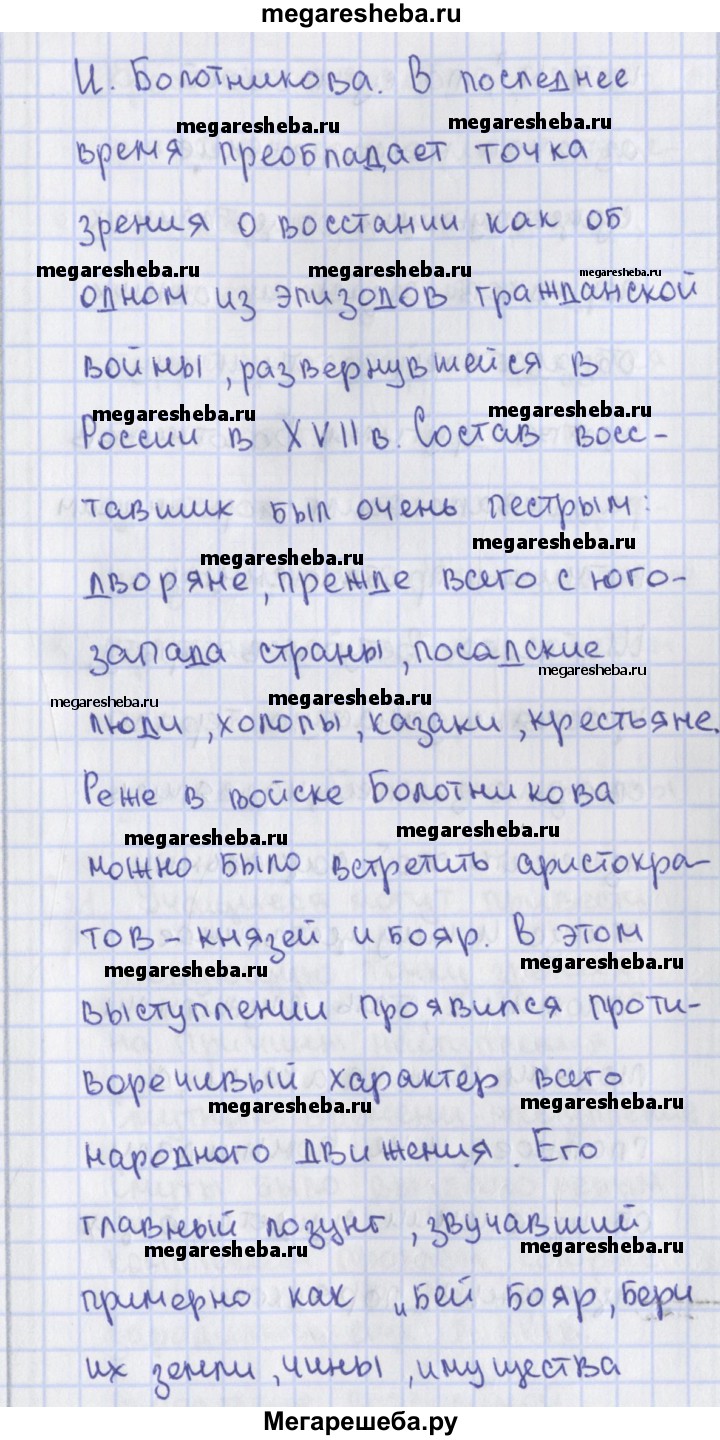 megaresheba.ru
И. Болотникова. В последнее
megaresheba.ru megaresheba.ru
время преобладает точка
зрения о восстании как об
megaresheba.ru megaresheba.ru megaresheba.ru
одном из эпизодов гражданской
войны, развернувшейся в
megaresheba.ru megaresheba.ru
России в XVII в. Состав восс-
тавших был очень пестрым:
megaresheba.ru megaresheba.ru
дворяне, прежде всего с юго-
запада страны, посадские
megaresheba.ru megaresheba.ru megaresheba.ru
люди, холопы, казаки, крестьяне.
Реже в войске Болотникова
megaresheba.ru megaresheba.ru
можно было встретить аристокра-
тов - князей и бояр. В этом
megaresheba.ru megaresheba.ru
выступлении проявился проти-
воречивый характер всего
megaresheba.ru megaresheba.ru
народного движения. Его
главный лозунг, звучавший
megaresheba.ru megaresheba.ru
примерно как „Бей бояр, бери
их земли, чины, имущества
Мегарешеба.ру